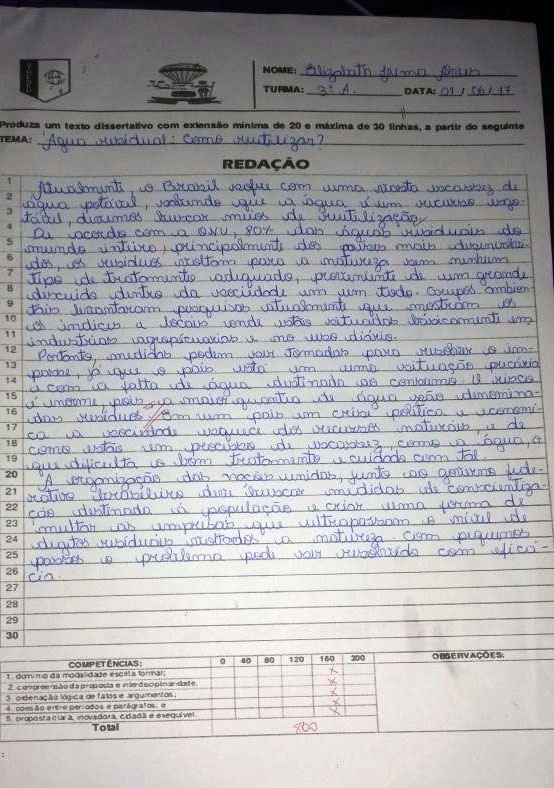 NOME: Elizabeth
TURMA: 3º A. DATA: 01/06/17
Produza um texto dissertativo com extensão mínima de 20 e máxima de 30 linhas, a partir do seguinte
TEMA: Água residual: Como reutilizar?
REDAÇÃO
1 Atualmente, o Brasil sofre com uma vasta escassez de
2 água potável, voltando que a água é um recurso esgo-
3 tável, devemos buscar meios de reutilização.
4 De acordo com a ONU, 80% das águas residuais do
5 mundo inteiro, principalmente dos países mais desenvolvi-
6 dos, os resíduos voltam para a natureza sem nenhum
7 tipo de tratamento adequado, proveniente de um grande
8 descuido dentro da sociedade em um todo. Campos ambien-
9 tais levantaram pesquisas atualmente que mostram os
10 os índices e locais onde estão situados basicamente em
11 industrias agropecuarias e no uso diário.
12 Portanto, medidas podem ser tomadas para resolver o im-
13 passe, já que o país está em uma situação precária
14 e com a falta de água destinada ao consumo. O risco
15 é enorme, pois a maior quantia de água são denomina-
16 das resíduos. Em um país em crise política e econômi-
17 ca a sociedade esquece dos recursos naturais, e de
18 como estão em processo de escassez, como a água, o
19 que dificulta o bom tratamento e cuidado com tal.
20 A organização das nações unidas, junto ao governo fede-
21 rativo brasileiro deve buscar medidas de conscientiza-
22 ção destinado à população e criar uma forma de
23 multar as empresas que ultrapassam o nível de
24 dejetos residuais voltados a natureza. Com pequenos
25 passos o problema pode ser resolvido com eficá-
26 cia.
27
28
29
30
COMPETÊNCIAS: 0 40 80 120 160 200 OBSERVAÇÕES:
1. domínio da modalidade escrita formal; x
2. compreensão da proposta e interdisciplinaridade; x
3. ordenação lógica de fatos e argumentos; x
4. coesão entre períodos e parágrafos; e x
5. proposta clara, inovadora, cidadã e exequível. x
Total 800